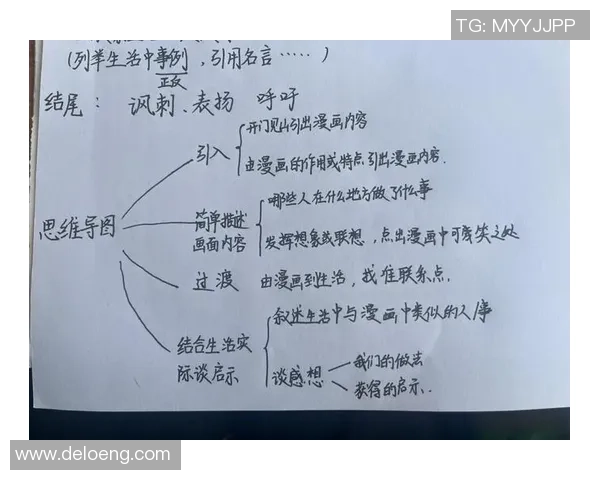 TG: MYYJJPP
(列举生活中事例，引用名言……)
正反
结尾： 讽刺、表扬 呼吁
思维导图
引入
开门见山引出漫画内容
由漫画的作用或特点引出漫画内容.
简单描述
画面内容
哪些人在什么地方做了什么事
发挥想象或联想，点出漫画中可笑之处
过渡 由漫画到生活，找准联系点.
结合生活实
际谈启示
叙述生活中与漫画中类似的人事
谈感想
我们的做法
获得的启示.
www.deloeng.com